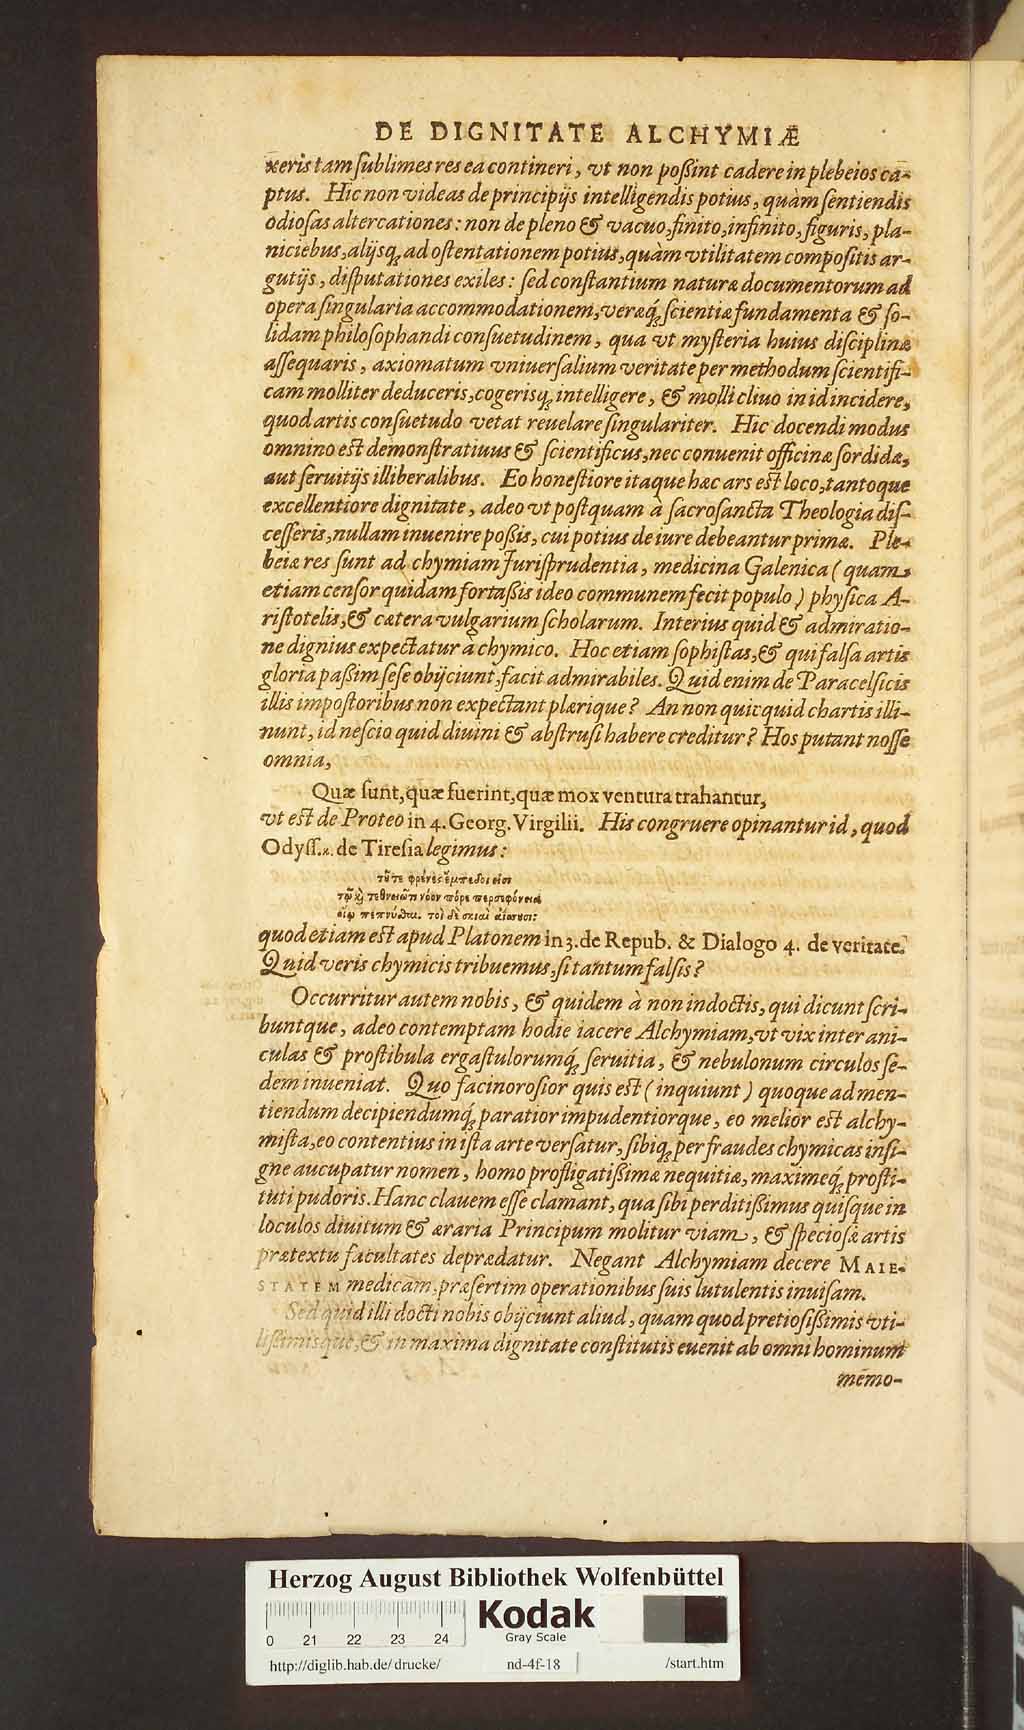 DE DIGNITATE ALCHYMIÆ
xeris tam ſublimes res ea contineri, vt non poßint cadere in plebeios cā-
ptus. Hic non videas de principijs intelligendis potius, quàm ſentiendis
odioſas altercationes: non de pleno & vacuo, finito, infinito, figuris, pla-
niciebus, alijsq́; ad oſtentationem potius, quàm vtilitatem compoſitis ar-
gutijs, diſputationes exiles: ſed conſtantium naturæ documentorum ad
opera ſingularia accommodationem, veræq́; ſcientiæ fundamenta & ſo-
lidam philoſophandi conſuetudinem, qua vt myſteria huius diſciplinæ
aſſequaris, axiomatum vniuerſalium veritate per methodum ſcientifi-
cam molliter deduceris, cogerisq́; intelligere, & molli cliuo in id incidere,
quod artis conſuetudo vetat reuelare ſingulariter. Hic docendi modus
omnino eſt demonſtratiuus & ſcientificus, nec conuenit officinæ ſordidæ,
aut ſeruitijs illiberalibus. Eo honeſtiore itaque hæc ars eſt loco, tantoque
excellentiore dignitate, adeo vt poſtquam à ſacroſancta Theologia diſ-
ceſſeris, nullam inuenire poßis, cui potius de iure debeantur primæ. Ple-
beiæ res ſunt ad chymiam Juriſprudentia, medicina Galenica (quam
etiam cenſor quidam fortaßis ideo communem fecit populo) phyſica A-
riſtotelis, & cætera vulgarium ſcholarum. Interius quid & admiratio-
ne dignius expectatur à chymico. Hoc etiam ſophiſtas, & qui falſa artis
gloria paßim ſeſe obijciunt, facit admirabiles. Quid enim de Paracelſicis
illis impoſtoribus non expectant plærique? An non quicquid chartis illi-
nunt, id neſcio quid diuini & abſtruſi habere creditur? Hos putant noſſe
omnia,
Quæ ſunt, quæ fuerint, quæ mox ventura trahantur,
vt eſt de Proteo in 4. Georg. Virgilii. His congruere opinantur id, quod
Odyſſ. κ. de Tireſia legimus:
τοῦ τε φρένες ἔμπεδοι εἰσι
τῷ καὶ τεθνειῶτι νόον πόρε περσεφόνεια
οἴῳ πεπνῦσθαι. τοὶ δὲ σκιαὶ ἀΐσσουσι:
quod etiam eſt apud Platonem in 3. de Repub. & Dialogo 4. de veritate.
Quid veris chymicis tribuemus, ſi tantum falſis?
Occurritur autem nobis, & quidem à non indoctis, qui dicunt ſcri-
buntque, adeo contemptam hodie iacere Alchymiam, vt vix inter ani-
culas & proſtibula ergaſtulorumq́; ſeruitia, & nebulonum circulos ſe-
dem inueniat. Quo facinoroſior quis eſt (inquiunt) quoque ad men-
tiendum decipiendumq́; paratior impudentiorque, eo melior eſt alchy-
miſta, eo contentius in iſta arte verſatur, ſibiq́; per fraudes chymicas inſi-
gne aucupatur nomen, homo profligatißimæ nequitiæ, maximeq́; proſti-
tuti pudoris. Hanc clauem eſſe clamant, qua ſibi perditißimus quiſque in
loculos diuitum & æraria Principum molitur viam, & ſpecioſæ artis
prætextu facultates deprædatur. Negant Alchymiam decere MAIE-
STATEM medicam, præſertim operationibus ſuis lutulentis inuiſam.
Sed quid illi docti nobis obijciunt aliud, quam quod pretioſißimis vti-
lißimisque, & in maxima dignitate conſtitutis euenit ab omni hominum
memo-
Herzog August Bibliothek Wolfenbüttel
0 21 22 23 24
Kodak
Gray Scale
http://diglib.hab.de/drucke/ nd-4f-18 /start.htm